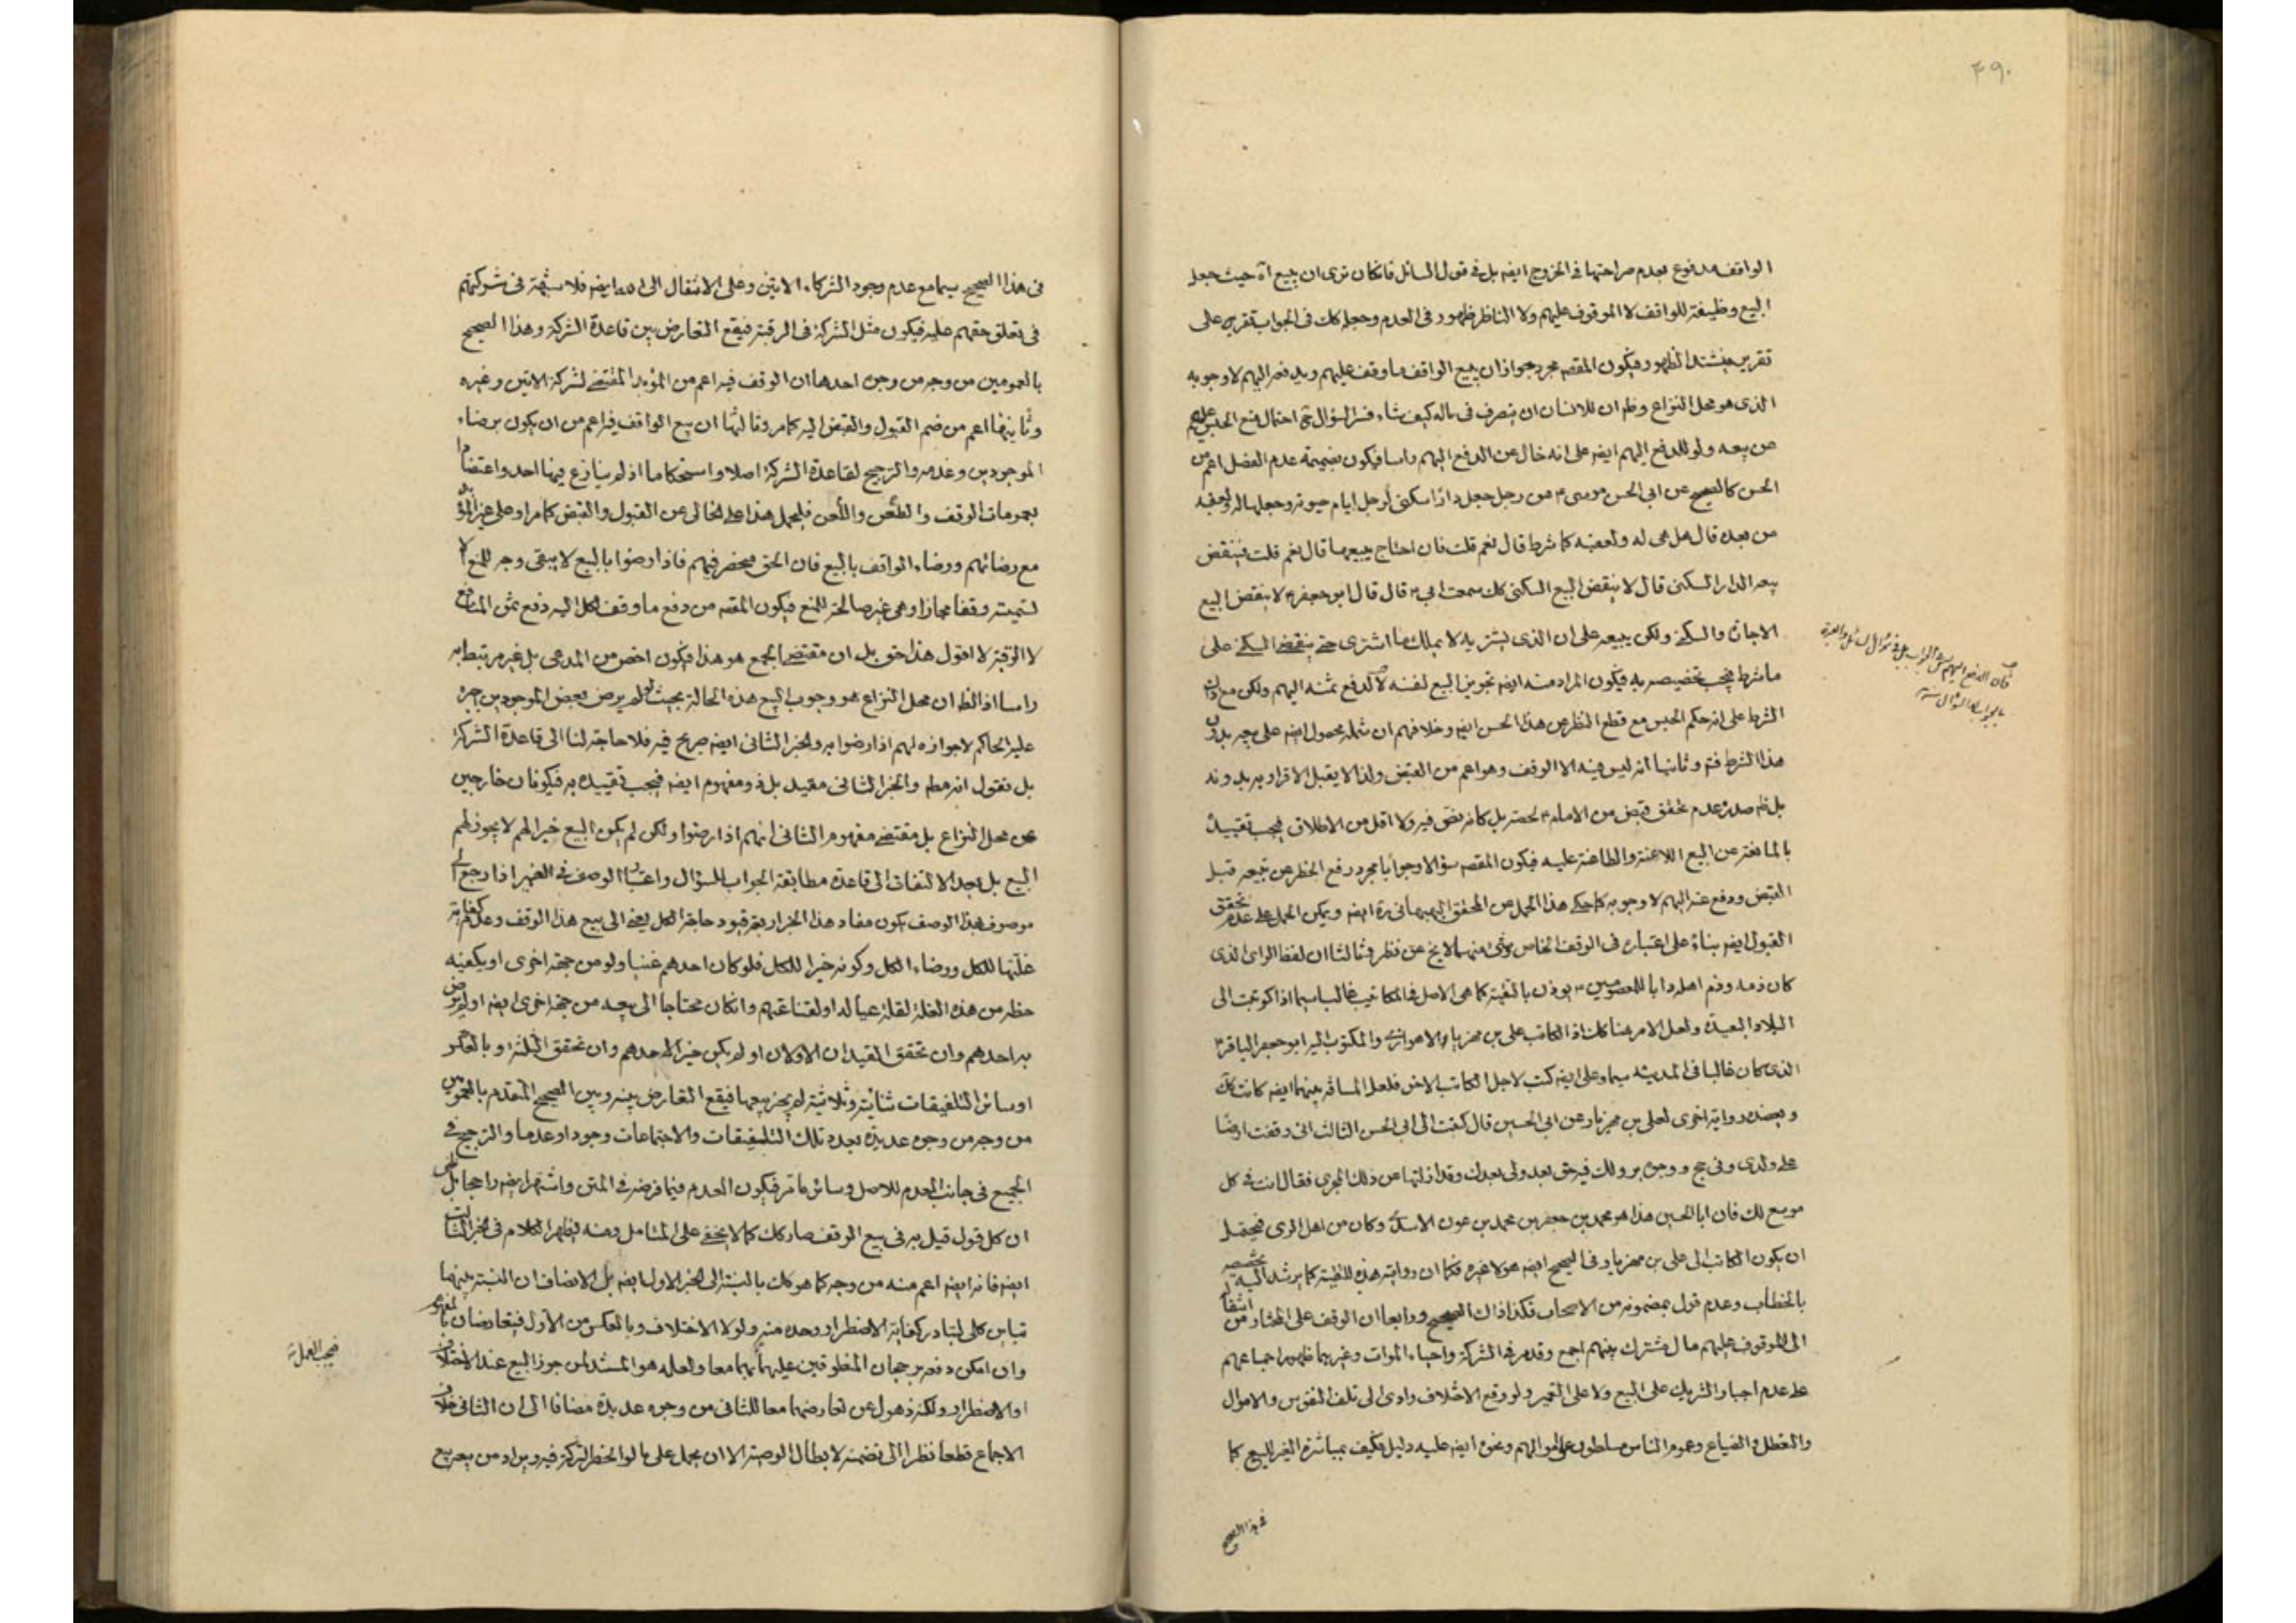 ۴۹۰
الواقف مدفوع بعدم صراحتها فى الخروج ايضه بل فى قول السائل فانكان ترى ان يبيع آه حيث جعل
البيع وظيفة للواقف لا الموقوف عليهم ولا الناظر ظهور فى العدم وجعله كك فى الجواب تقريره على
تقريره فيشتد الظهور فيكون المقصه مجرد جواز ان يبيع الواقف ما وقف عليهم ويدفعه اليهم لا وجوبه
الذى هو محل النزاع وظ ان للانسان ان يتصرف فى ماله كيف شاء فسر السؤال ح احتمال منع الحبس عليهم
عن بيعه ولو للدفع اليهم ايضه على انه خال عن الدفع اليهم راسا فيكون بضميمة عدم الفصل اعم من
الحسن كالصحيح عن ابى الحسن موسى ع من رجل جعل دارا سكنى لرجل ايام حيوته وجعلها له ولعقبه
من بعده قال هل هى له ولعقبه كما شرط قال نعم قلت فان احتاج يبيعها قال نعم قلت فينقض
بيعه الدار السكنى قال لا ينقض البيع السكنى كك سمعت ابى ع قال قال ابو جعفر ع لا ينقض البيع
الاجارة والسكنى ولكن يبيعه على ان الذى يشتريه لا يملك ما اشترى حتى ينقضى السكنى على
ما شرط فيجب تخصيصه به فيكون المراد منه ايضه تجويز البيع لنفسه لا لدفع ثمنه اليهم ولكن مع
الشرط على انه حكم الحبس مع قطع النظر عن هذا الحسن ايضه وخلافهم ان شمله محصول ايضه على بيعه بدون
هذا الشرط فتم وثانيها انه ليس فيه الا الوقف وهو اعم من القبض ولذا لا يقبل الاقرار به بدونه
بل ظ صدره عدم تحقق قبض من الامام ع لحصته بل كانه نص فيه ولا اقل من الاطلاق فيجب تقييده
بالمانعة عن البيع اللاعنة والطاعنة عليه فيكون المقصه سؤالا وجوابا مجرد رفع الحظر عن بيعه قبل
القبض ودفع ثمنه اليهم لا وجوبه كما حكى هذا الحمل عن المحقق البهبهانى ره ايضه ويمكن الحمل على عدم تحقق
القبول ايضه بناء على اعتباره فى الوقف الخاص وشئ منهما لا يخ عن نظر وثالثا ان لفظ الراى الذى
كان ذمه وذم اهله دابا للمعصومين ع يوذن بالتقية كما هى الاصل فى المكاتيب غالبا سيما اذا كوتبت الى
البلاد البعيدة ولعل الامر هنا كك اذ الكاتب على بن مهزيار الاهوازى والمكتوب اليه ابو جعفر الباقر ع
الذى كان غالبا فى المدينه سيما وعلى ايضه كتب لاجل الكاتب الاخر فلعل المسافة بينهما ايضه كانت كك
ويعضده رواية اخرى لعلى بن مهزيار عن ابى الحسين قال كتبت الى ابى الحسن الثالث انى وقفت ارضا
على ولدى وفى حج ووجوه بر ولك فيه حق بعدى ولى بعدك وقد ازلتها عن ذلك المجرى فقال انت فى كل
موسع لك فان ابا الحسين هذا هو محمد بن جعفر بن محمد بن عون الاسدى وكان من اهل الرى فيحتمل
ان يكون الكاتب الى على بن مهزيار فى الصحيح ايضه هو لا غيره فكما ان روايته هذه للتقية كما يرشد اليه تخصيصه
بالخطاب وعدم قول بمضمونه من الاصحاب فكذا ذاك الصحيح ورابعا ان الوقف على المختار من انتقاله
الى الموقوف عليهم مال مشترك بينهم اجمع وقد مر فى الشركة واحياء الموات وغيرهما ظهور اجماعهم
على عدم اجبار الشريك على البيع ولا على التعمير ولو وقع الاختلاف وادى الى تلف النفوس والاموال
والتعطل والضياع وعموم الناس مسلطون على اموالهم ونحوه ايضه عليه دليل فكيف بمباشرة الغير للبيع كما
فى هذا الصحيح
فان الدفع اليهم ليس فى الجواب بل فى سؤال السائل والعبرة
بالجواب لا السؤال منه
فى هذا الصحيح سيما مع عدم وجود الشركاء الاتين وعلى الانتقال الى الله ايضه فلا شبهة فى شركتهم
فى تعلق حقهم عليه فيكون مثل الشركة فى الرقبة فيقع التعارض بين قاعدة الشركة وهذا الصحيح
بالعمومين من وجه من وجوه احدها ان الوقف فيه اعم من المؤبد المقتضى لشركة الاتين وغيره
وثانيها اعم من ضم القبول والقبض اليه كما مر وثالثها ان بيع الواقف فيه اعم من ان يكون برضاء
الموجودين وعدمه والترجيح لقاعدة الشركة اصلا واستحكاما اذ لم ينازع فيها احد واعتضادا
بعمومات الوقف والطعن واللعن فليحمل هذا على الخالى عن القبول والقبض كما مر او على غير المؤبد
مع رضائهم ورضاء الواقف بالبيع فان الحق منحصر فيهم فاذا رضوا بالبيع لا يبقى وجه للمنع الا
تسميته وقفا مجازا وهى غير صالحة للمنع فيكون المقصه من دفع ما وقف لكل اليه دفع ثمن المنافع
لا الرقبة لا اقول هذا حق بل ان مقتضى الجمع هو هذا فيكون اخص من المدعى بل غير مرتبط به
راسا اذ الظ ان محل النزاع هو وجوب البيع هذه الحالة بحيث لو لم يرض بعض الموجودين جبره
عليه الحاكم لا جوازه لهم اذا رضوا به والخبر الثانى ايضه صريح فيه فلا حاجة لنا الى قاعدة الشركة
بل نقول انه مطه والخبر الثانى مقيد بل ذو مفهوم ايضه فيجب تقييده به فيكونان خارجين
عن محل النزاع بل مقتضى مفهوم الثانى انهم اذا رضوا ولكن لم يكن البيع خيرا لهم لا يجوز لهم
البيع بل بعد الالتفات الى قاعدة مطابقة الجواب للسؤال واعتبار الوصف فى الضمير اذا رجع الى
موصوف بهذا الوصف يكون مفاد هذا الخبر اربعة قيود حاجة الكل يعنى الى بيع هذا الوقف وعدم كفاية
غلتها للكل ورضاء الكل وكونه خيرا للكل فلو كان احدهم غنيا ولو من جهة اخرى او يكفيه
حظه من هذه الغلة لقلة عياله او لقناعتهم وانكان محتاجا الى بيعه من جهة اخرى ايضه او لم يرض
به احدهم وان تحقق القيدان الاولان او لم يكن خيرا لاحدهم وان تحقق الثلثة او بالعكس
او سائر التلفيقات ثنائية وثلاثية لم يجز بيعها فيقع التعارض بينه وبين الصحيح المتقدم بالعمومين
من وجه من وجوه عديدة بعدد تلك التلفيقات والاجتماعات وجودا وعدما والترجيح فى
الجميع فى جانب العدم للاصل وسائر ما مر فيكون العدم فيما فرضه فى المتن واشتهر ايضه راجحا بل
ان كل قول قيل به فى بيع الوقف صار كك كما لا يخفى على المتامل ومنه يظهر الكلام فى الخبر الثالث
ايضه فانه ايضه اعم منه من وجه كما هو كك بالنسبة الى الخبر الاول ايضه بل الانصاف ان النسبة بينهما
تباين كلى لتبادر كفاية الاضطرار وحده منه ولولا الاختلاف وبالعكس من الاول فيتعارضان
وان امكن دفعه برجحان المنطوقين عليهما بهما معا ولعله هو المستند لمن جوز البيع عند الاختلاف
او الاضطرار ولكنه ذهول عن تعارضهما معا للثانى من وجوه عديدة مضافا الى ان الثانى خلاف
الاجماع قطعا نظرا الى تضمنه لابطال الوصية الا ان يحمل على ما لو انحصر التركة فيه ويراد من بيعه بيع
فيجب العمل منه